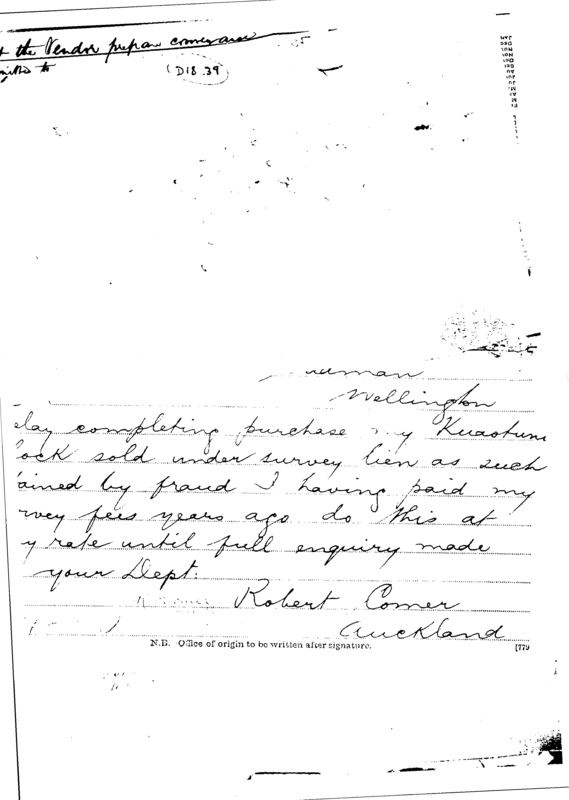 the Vendor prepare conveyance
to
(D18.39)
Wellington
elay completing purchase my Kuaotunu
ock sold under survey lien as such
ained by fraud I having paid my
rvey fees years ago do this at
y rate until full enquiry made
your Dept.
Robert Comer
Auckland
N.B. Office of origin to be written after signature.
[779